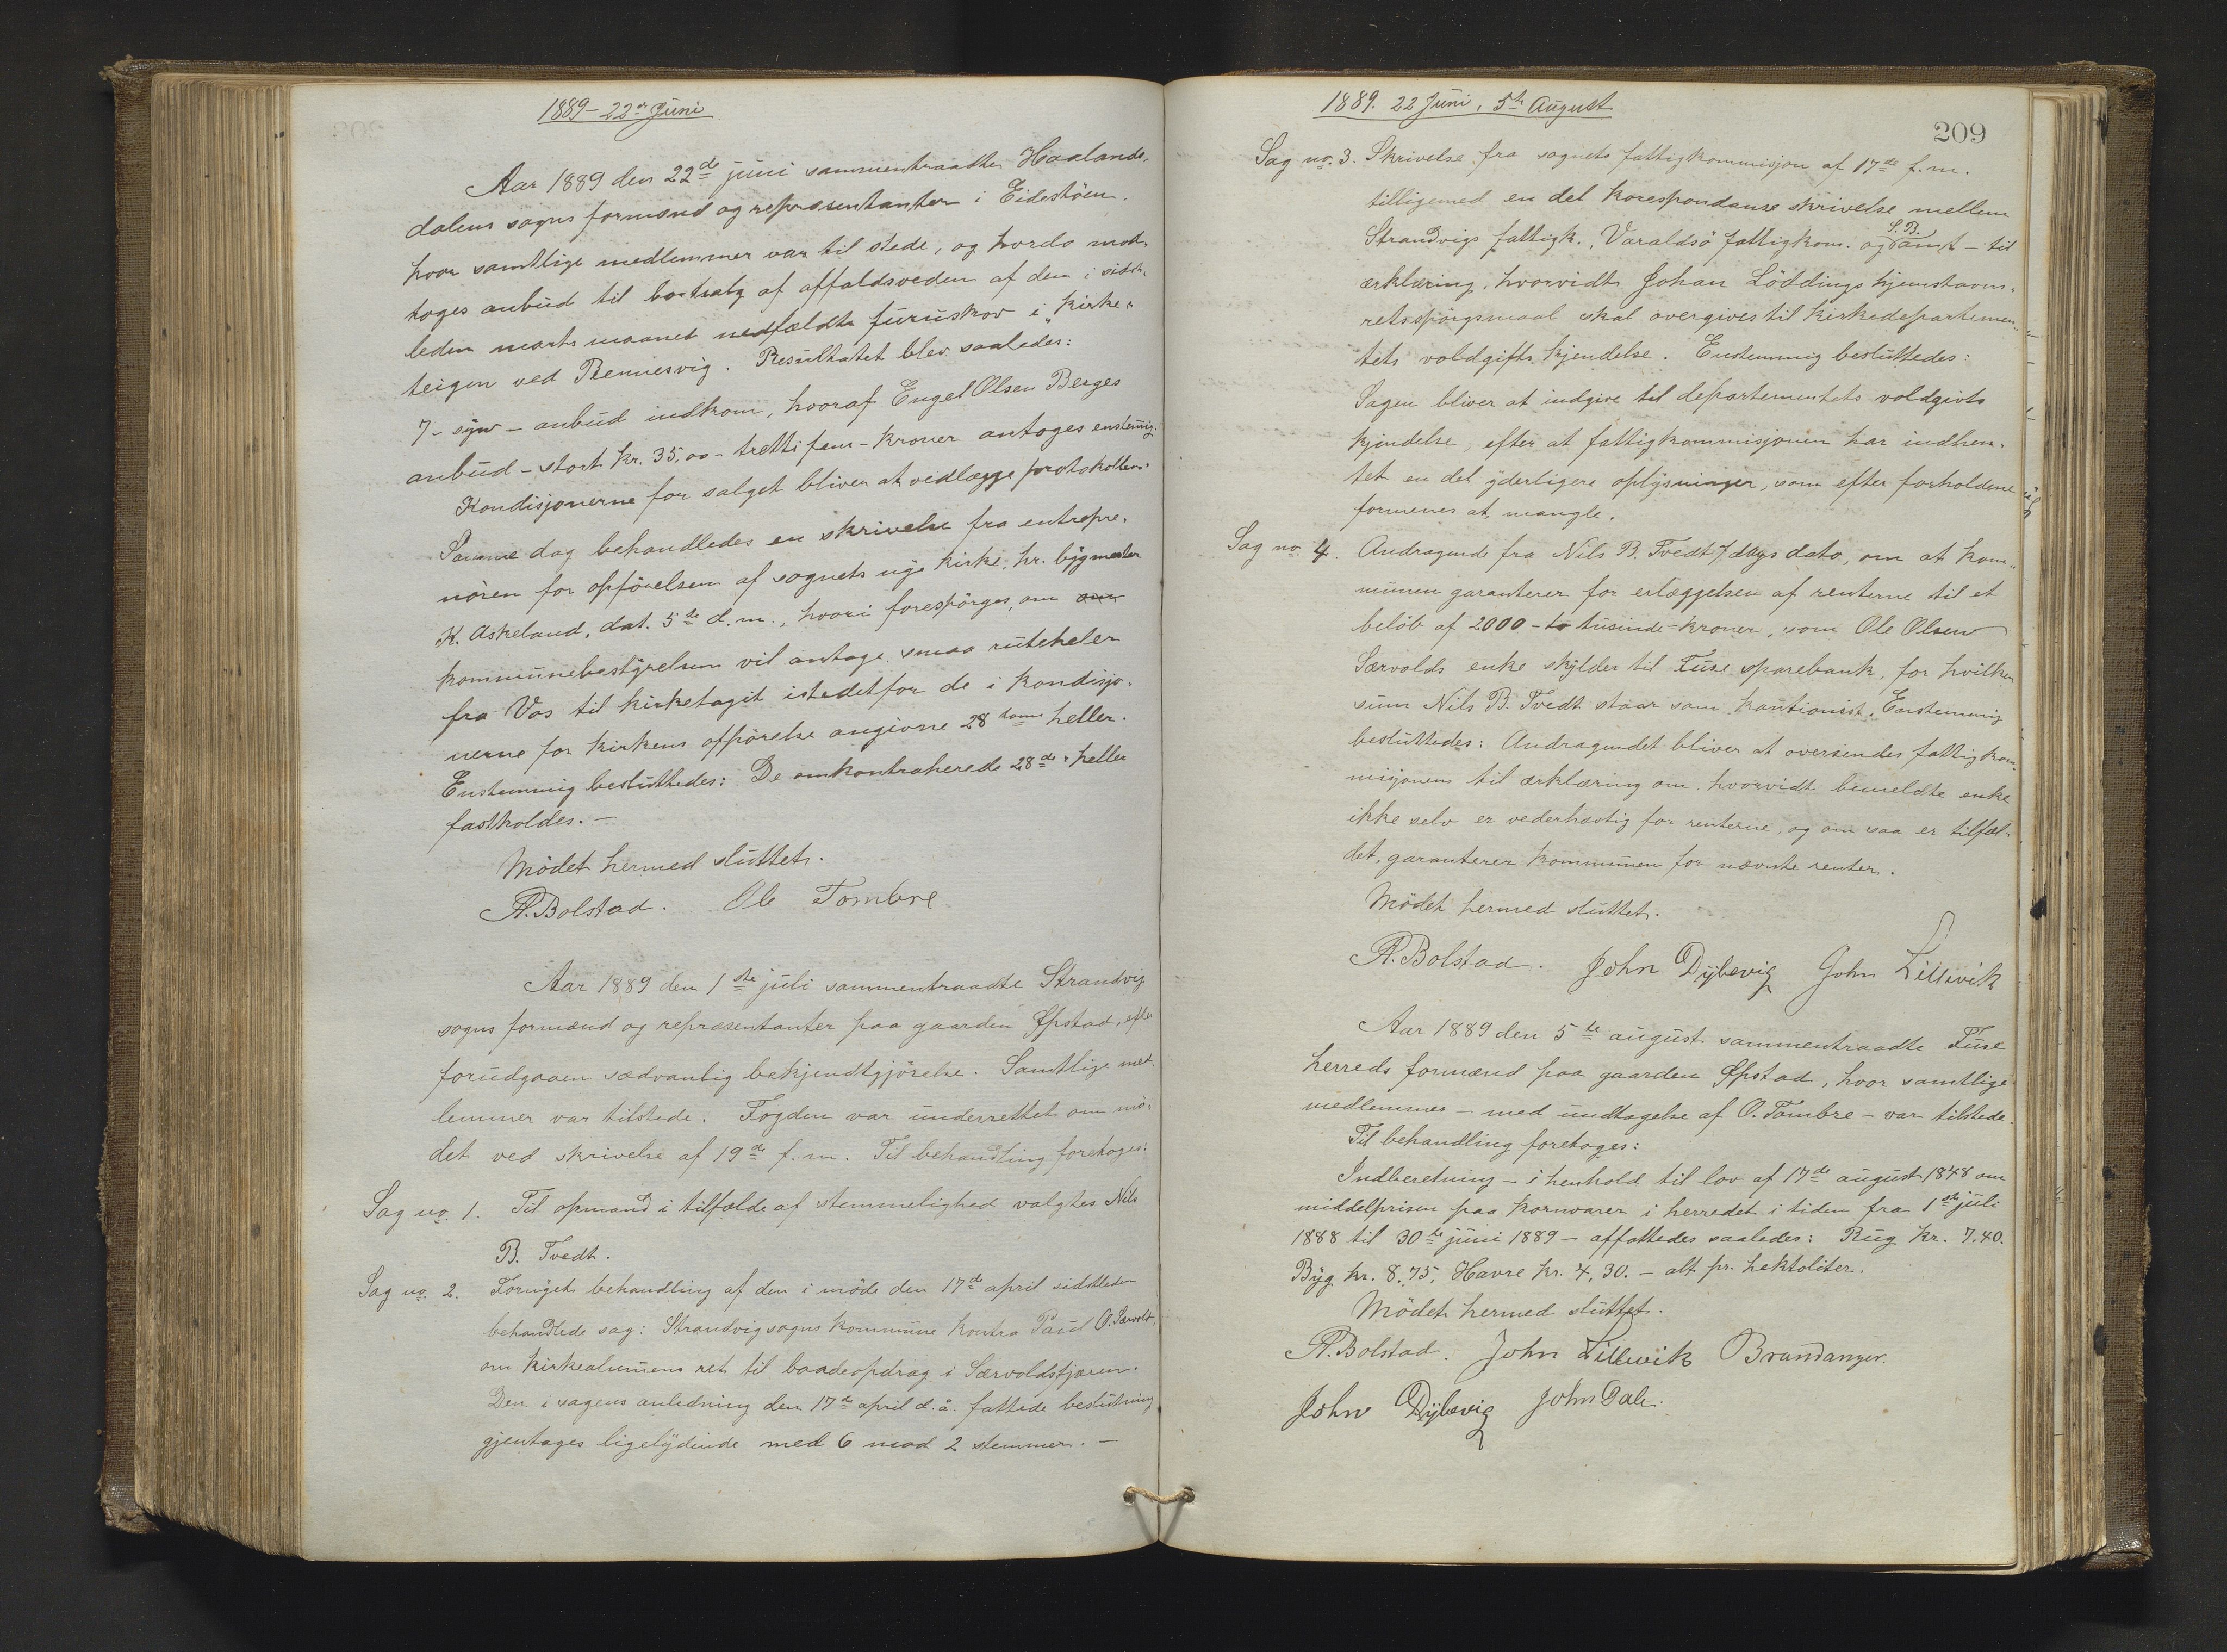 1889 - 22de Juni
Aar 1889 den 22de juni sammentraadte Haalands-
dalens sogns formænd og repræsentanter i Eidestöen,
hvor samtlige medlemmer var til stede, og hvorda mod-
toges anbud til bortsalg af affaldsveden af den i sidst-
leden marts maaned nedfældte furuskov i "Kirke-
teigen ved Rennesvig. Resultatet blev saaledes:
7 - syv - anbud indkom, hvoraf Engel Olsen Berges
anbud - stort kr. 35,00 - tretti fem - kroner antoges enstemig.
Kondisjonerne for salget bliver at vedlægge protokollen.
Samme dag behandledes en skrivelse fra entrepre-
nören for opförelsen af sognets nye kirke, hr. bygmester
K. Askeland, dat. 5te d.m., hvori forespörges, om om
kommunebestyrelsen vil antage smaa ruteheler
fra Vos til kirketagit istedetfor de i kondisjo-
nerne for kirkens opförelse angivne 28 toms heller.
Enstemmig besluttedes: De omkontraherede 28de heller
fastholdes. -
Mödet hermed sluttet.
A. Bolstad. Ole Tombre
Aar 1889 den 1ste juli sammentraadte Strandvig
sogns formænd og repræsentanter paa gaarden Øpstad, efter
forudgaaen sædvanlig bekjendtgjörelse. Samtlige med-
lemmer var tilstede. Fogden var underrettet om mö-
det ved skrivelse af 19de f.m. Til behandling foretoges:
Sag no. 1. Til opmand i tilfælde af stemmelighed valgtes Nils
B. Tvedt.
Sag no. 2. Fornyet behandling af den i möde den 17de april sidstleden
behandlede sag: Strandvig sogns kommune kontra Paul O. Særvold,
om kirkealmuens ret til baadeopdrag i Særvoldsfjæren.
Den i sagens anledning den 17de april d.å. fattede beslutning
gjentages ligelydende med 6 mod 2 stemmer. -
1889. 22 Juni, 5te August
209
Sag no. 3. Skrivelse fra sognets fattigkommisjon af 17de f.m.
tilligemed en del korespondanse skrivelse mellem
Strandvigs fattigk., Varaldsö fattigkom. og S.B. amt - til
ærklæring, hvorvidt Johan Löddings hjemstavns-
retsspörgsmaal skal overgives til kirkedepartemen-
tets voldgifts kjendelse. Enstemmig besluttedes:
Sagen bliver at indgive til departementets voldgivts
kjendelse, efter at fattigkommisjonen har indhen-
tet en del yderligere oplysninger, som efter forholdene
formenes at mangle.
Sag no. 4. Andragende fra Nils B. Tvedt, dags dato, om at kom-
munen garanterer for erlæggelsen af renterne til et
belöb af 2000 - to tusinde - kroner, som Ole Olsen
Særvolds enke skylder til Fuse sparebank, for hvilken
sum Nils B. Tvedt staar som kautionist. Enstemmig
besluttedes: Andragendet bliver at oversendes fattigkom-
misjonen til ærklæring om, hvorvidt bemeldte enke
ikke selv er vederhæftig for renterne, og om saa er tilfæl-
det, garanterer kommunen for nævnte renter.
Mödet hermed sluttet.
A. Bolstad. John Dybevig John Lillevik
Aar 1889 den 5te august sammentraadte Fuse
herreds formænd paa gaarden Øpstad, hvor samtlige
medlemmer - med undtagelse af O. Tombre - var tilstede.
Til behandling foretoges:
Indberetning - i henhold til lov af 17de august 1848 om
middelprisen paa kornvarer i herredet i tiden fra 1ste juli
1888 til 30te juni 1889 - affattedes saaledes: Rug kr. 7.40.
Byg kr. 8.75, Havre kr. 4,30. - alt pr. hektoliter.
Mödet hermed sluttet.
A. Bolstad. John Lillevik Brandanger.
John Dybevig John Dale.